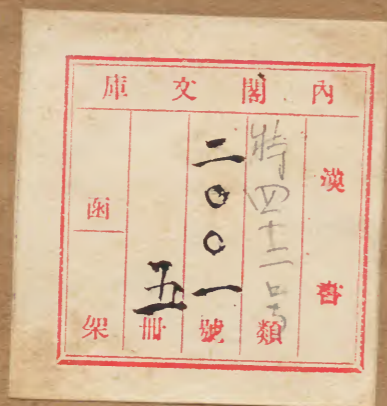 內閣文庫
漢書
特四十二号
類
二〇〇一
號
五
冊
函
架